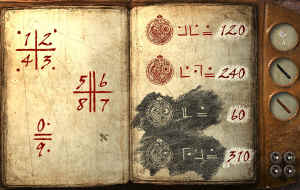 1 2
4 3
5 6
8 7
0
9
= 120
= 240
= 60
= 310